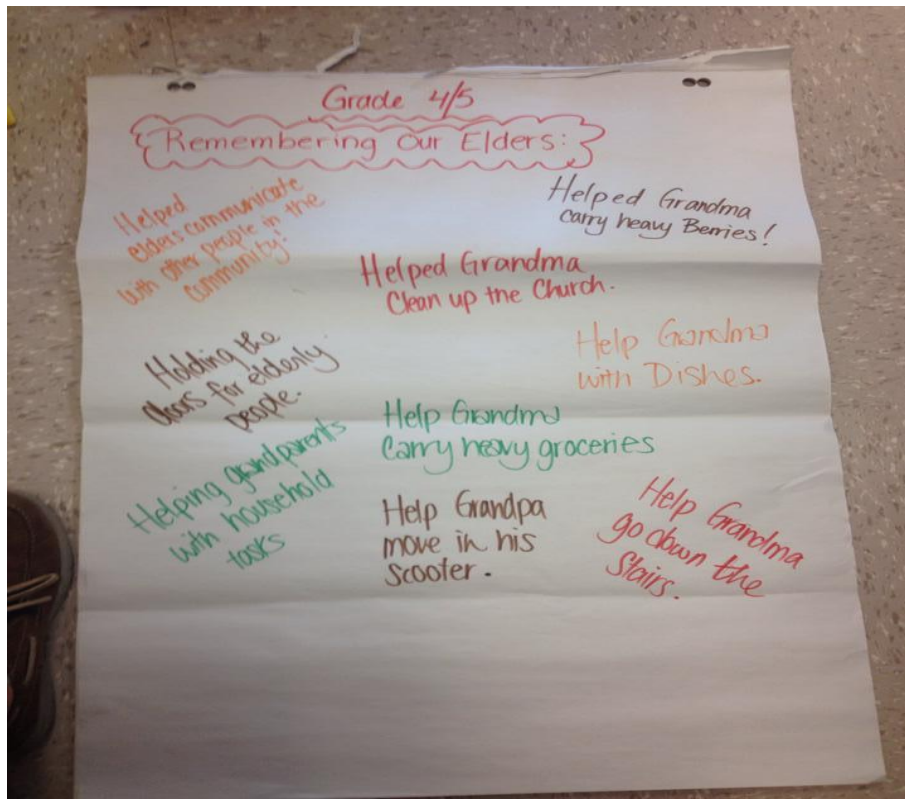 Grade 4/5
Remembering Our Elders:
Helped
elders communicate
with other people in the
community.
Helped Grandma
carry heavy Berries!
Helped Grandma
Clean up the Church.
Holding the
doors for elderly
people.
Help Grandma
with Dishes.
Help Grandma
Carry heavy groceries
Helping grandparents
with household
tasks
Help Grandpa
move in his
Scooter.
Help Grandma
go down the
Stairs.